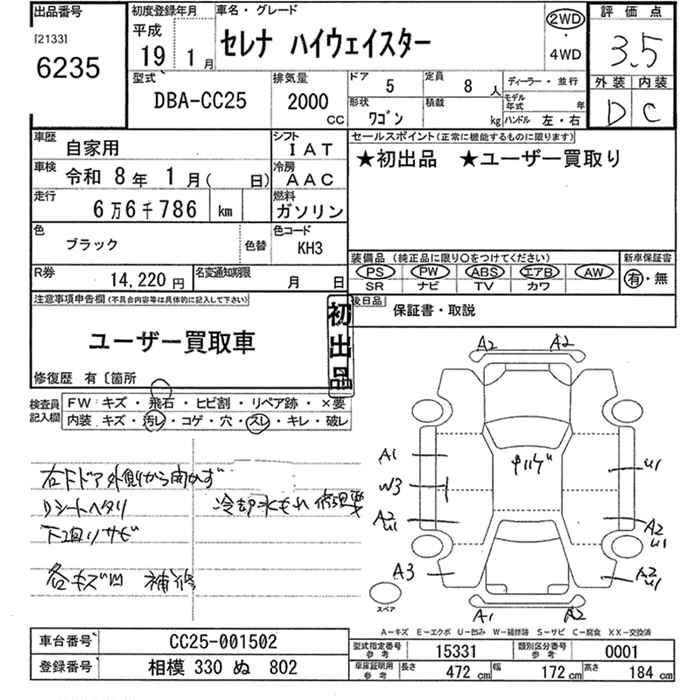 出品番号
[2133]
6235
初度登録年月
平成
19年 1月
車名・グレード
セレナ ハイウェイスター
2WD
・
4WD
評価点
3.5
外装 内装
D C
型式
DBA-CC25
排気量
2000 CC
ドア 5
定員 8 人
形状 ワゴン
積載 kg
ディーラー・並行
モデル年式 年
ハンドル 左・右
車歴 自家用
シフト IAT
車検 令和 8年 1月( 日)
冷房 AAC
走行 6万6千786 km
燃料 ガソリン
色 ブラック 色替
色コード KH3
R券 14,220円
名変通知期限 月 日
セールスポイント(正常に機能するものに限ります)
★初出品 ★ユーザー買取り
装備品 (純正品に限り○をつけてください)
PS PW ABS エアB AW
SR ナビ TV カワ
新車保証書
有・無
後日品
保証書・取説
注意事項申告欄(不具合内容等は具体的に記入して下さい)
ユーザー買取車
初出品
修復歴 有〔箇所
検査員記入欄
FW キズ・飛石・ヒビ割・リペア跡・×要
内装 キズ・汚レ・コゲ・穴・スレ・キレ・破レ
右Fドア外側から開かず
Dシートヘタリ 冷却水もれ 修理要
下回りサビ
各キズ凹 補修
A2 A2
A1
W3
A2
U1
A3
U1
A2
U1
A2
U1
A1 A2
スペア
A-キズ E-エクボ U-凹み W-補修跡 S-サビ C-腐食 XX-交換済
車台番号 CC25-001502
登録番号 相模 330 ぬ 802
型式指定番号 参考 15331
類別区分番号 参考 0001
車庫証明用 参考 長さ 472 cm 幅 172 cm 高さ 184 cm